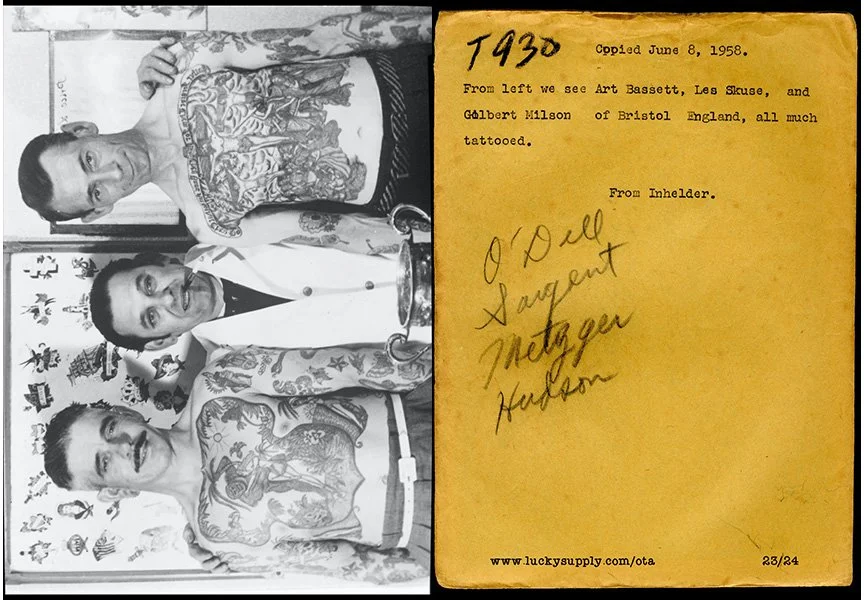 T930
Copied June 8, 1958.
From left we see Art Bassett, Les Skuse, and
Gilbert Milson of Bristol England, all much
tattooed.
From Inhelder.
O'Dell
Sargent
Metzger
Hudson
www.luckysupply.com/ota 23/24